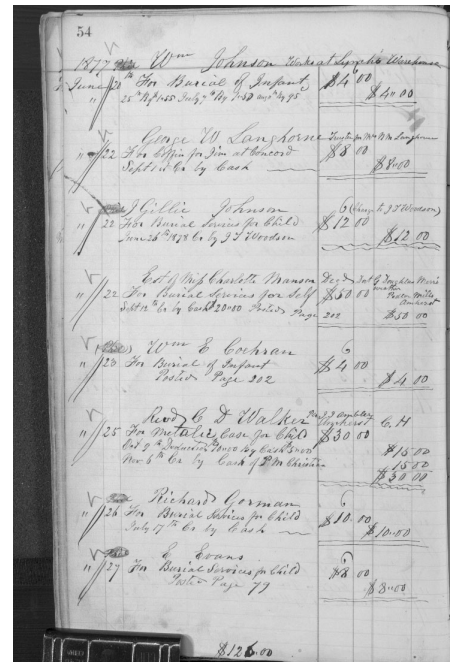 54
1877 Wm Johnson Works at Lynch's Warehouse
June 20th For Burial of Infant $4 00
25th By 1.55 July 7th By $4.00
" 22 George W. Langhorne Trustee for Mrs Wm Langhorne
For Coffin for Jim at Concord $8 00
Sept 1st Cr by Cash $8.00
J Gillie Johnson 6 (Charge to J T Woodson)
" 22 For Burial Services for Child $12 00
June 26th 1878 Cr by J T Woodson $12 00
Est of Miss Charlotte Manson Decd
" 22 For Burial Services for Self $50 00
Sept 12th Cr by Cash 20.00 Posted Page 202 $50 00
Wm E Cochran 6
" 23 For Burial of Infant $4 00
Posted Page 202 $4 00
Revd C D Walker Amherst C. H
" 25 For Metalic Case for Child $30 00
Oct 9th Deduction 10.00 By Cash 5.00 $15.00
Nov 6th Cr by Cash of P M Christian 15 00
$30 00
Richard Gorman 6
" 26 For Burial Services for Child $10.00
July 17th Cr by Cash $10.00
E Evans 6
" 27 For Burial Services for Child $8 00
Posted Page 79 $8.00
$126.00